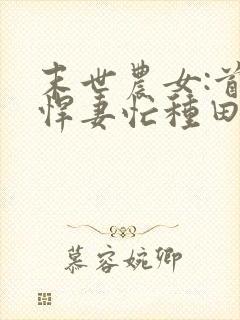 末世農女:首
悍妻忙種田
慕容婉卿